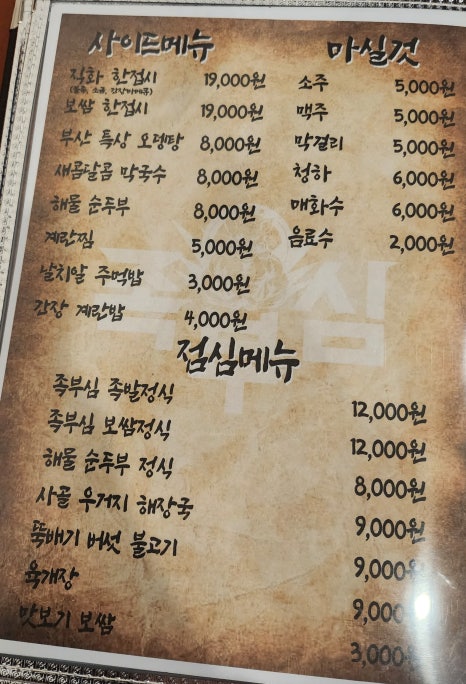 사이드메뉴
직화 한접시 19,000원
보쌈 한접시 19,000원
부산 특상 오뎅탕 8,000원
새콤달콤 막국수 8,000원
해물 순두부 8,000원
계란찜 5,000원
날치알 주먹밥 3,000원
간장 계란밥 4,000원
마실것
소주 5,000원
맥주 5,000원
막걸리 5,000원
청하 6,000원
매화수 6,000원
음료수 2,000원
점심메뉴
족부심 족발정식 12,000원
족부심 보쌈정식 12,000원
해물 순두부 정식 8,000원
사골 우거지 해장국 9,000원
뚝배기 버섯 불고기 9,000원
육개장 9,000원
맛보기 보쌈 3,000원